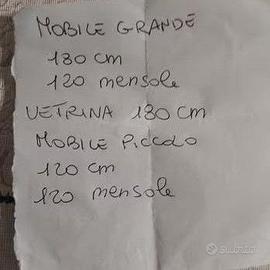 MOBILE GRANDE
180 cm
120 mensole
VETRINA 180 cm
MOBILE PICCOLO
120 cm
120 mensole
Subito